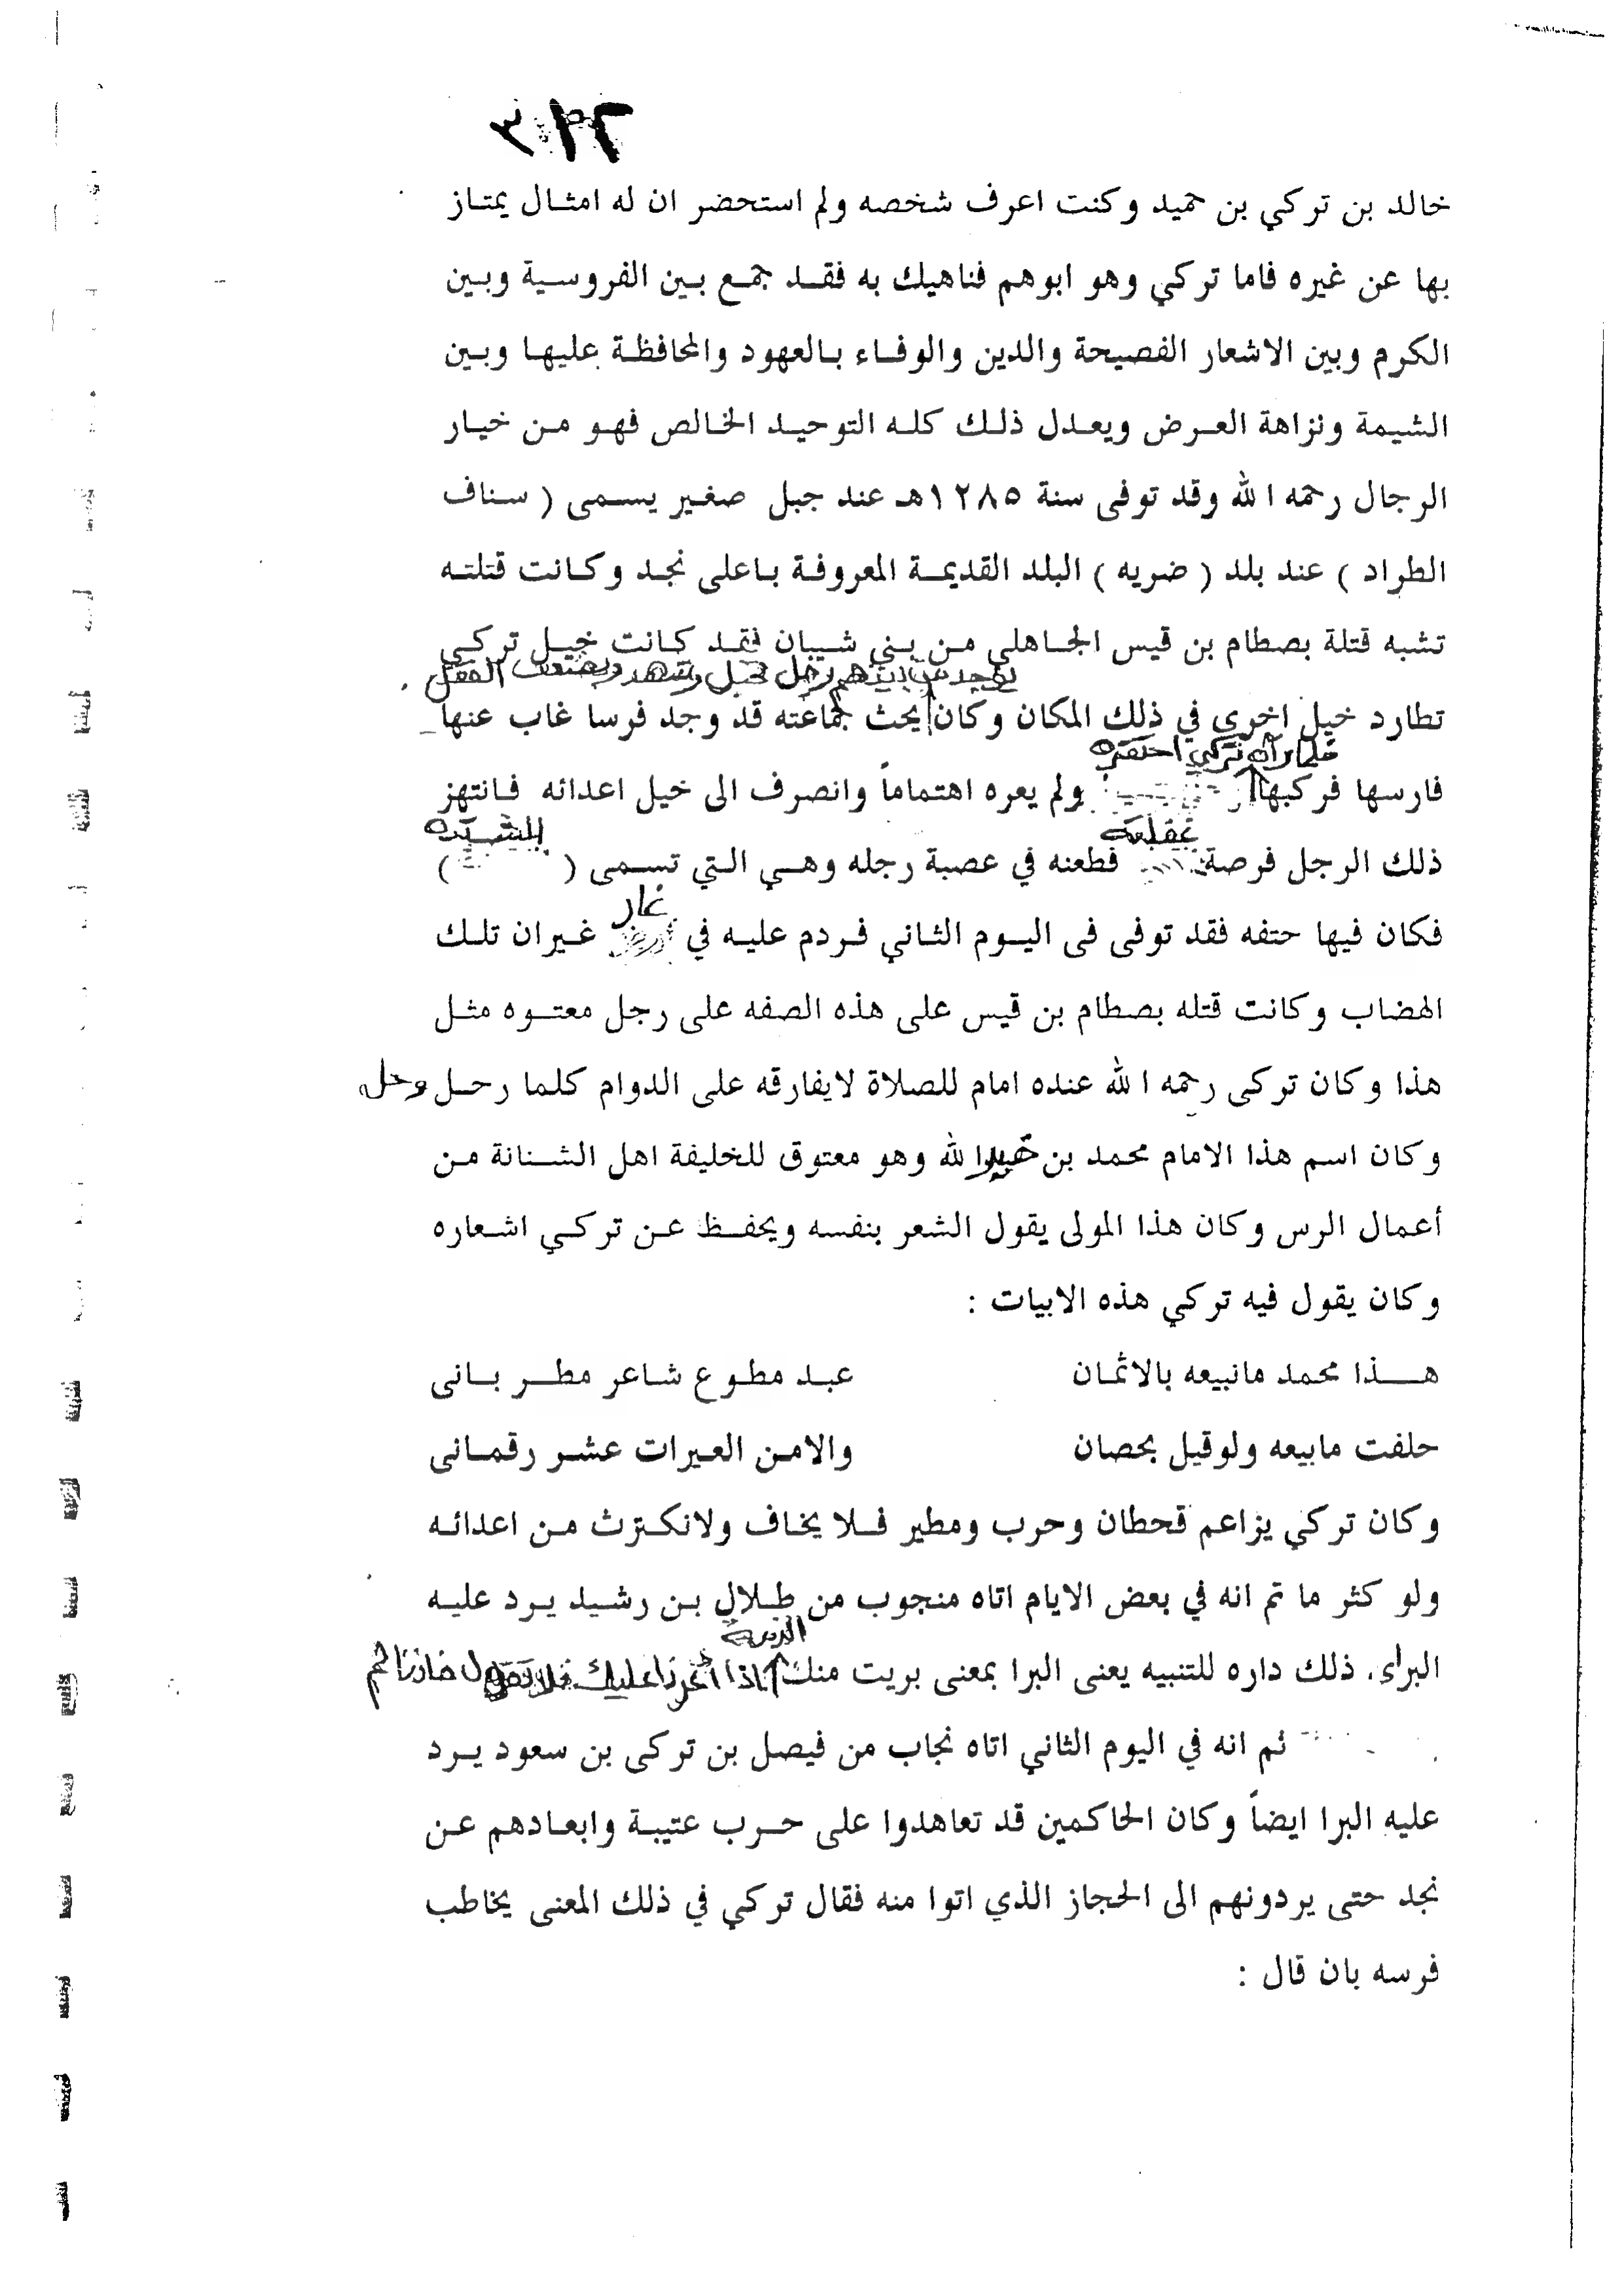 خالد بن تركي بن حميد وكنت اعرف شخصه ولم استحضر ان له امثال يمتاز
بها عن غيره فاما تركي وهو ابوهم فناهيك به فقد جمع بين الفروسية وبين
الكرم وبين الاشعار الفصيحة والدين والوفاء بالعهود والمحافظة عليها وبين
الشيمة ونزاهة العرض ويعدل ذلك كله التوحيد الخالص فهو من خيار
الرجال رحمه الله وقد توفى سنة ١٢٨٥هـ عند جبل صغير يسمى ( سناف
الطراد ) عند بلد ( ضريه ) البلد القديمة المعروفة باعلى نجد وكانت قتلته
تشبه قتلة بصطام بن قيس الجاهلي من بني شيبان فقد كانت خيل تركي
العقل
تطارد خيل اخرى في ذلك المكان وكان يحث جماعته قد وجد فرسا غاب عنها
فلما رآه تركي احتقره
فارسها فركبها ولم يعره اهتماماً وانصرف الى خيل اعدائه فانتهز
ذلك الرجل فرصة فطعنه في عصبة رجله وهي التي تسمى ( )
غار
فكان فيها حتفه فقد توفى فى اليوم الثاني فردم عليه في غيران تلك
الهضاب وكانت قتله بصطام بن قيس على هذه الصفه على رجل معتوه مثل
هذا وكان تركى رحمه الله عنده امام للصلاة لايفارقه على الدوام كلما رحل وحل
وكان اسم هذا الامام محمد بن عبدالله وهو معتوق للخليفة اهل الشنانة من
أعمال الرس وكان هذا المولى يقول الشعر بنفسه ويحفظ عن تركي اشعاره
وكان يقول فيه تركي هذه الابيات :
هذا محمد مانبيعه بالاثمان عبد مطوع شاعر مطر بانى
حلفت مابيعه ولوقيل بحصان والامن العيرات عشر رقمانى
وكان تركي يزاعم قحطان وحرب ومطير فلا يخاف ولانكترث من اعدائه
ولو كثر ما تم انه في بعض الايام اتاه منجوب من طلال بن رشيد يرد عليه
البراء. ذلك داره للتنبيه يعنى البرا بمعنى بريت منك اذا اغرنا عليك فلا تقول
ثم انه في اليوم الثاني اتاه نجاب من فيصل بن تركى بن سعود يرد
عليه البرا ايضاً وكان الحاكمين قد تعاهدوا على حرب عتيبة وابعادهم عن
نجد حتى يردونهم الى الحجاز الذي اتوا منه فقال تركي في ذلك المعنى يخاطب
فرسه بان قال :